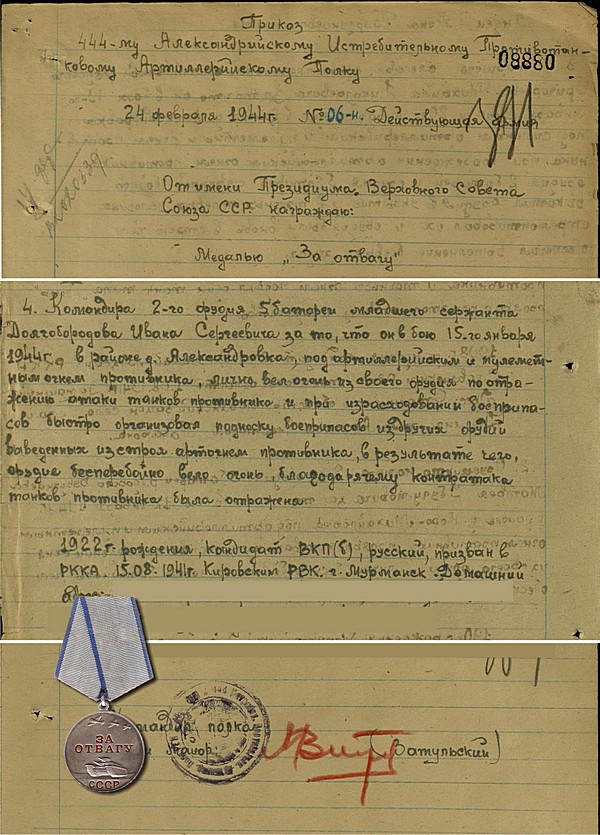 Приказ
444-му Александрийскому Истребительному Противотан-
ковому Артиллерийскому Полку
08880
24 февраля 1944г. № 06-н. Действующая армия
От имени Президиума Верховного Совета
Союза ССР награждаю:
Медалью „За отвагу"
4. Командира 2-го орудия 5 батареи младшего сержанта
Долгобородова Ивана Сергеевича за то, что он в бою 15-го января
1944г. в районе д. Александровка, под артиллерийским и пулемет-
ным огнем противника, лично вел огонь из своего орудия по отра-
жению атаки танков противника и при израсходовании боеприпа-
сов быстро организовал подноску боеприпасов из других орудий
выведенных из строя артогнем противника, в результате чего,
орудие бесперебойно вело огонь, благодаря чему контратака
танков противника была отражена
1922г. рождения, кандидат ВКП(б), русский, призван в
РККА 15.08.1941г. Кировским РВК. г. Мурманск. Домашний
полка
майор: (Ватульский)
ЗА
ОТВАГУ
СССР